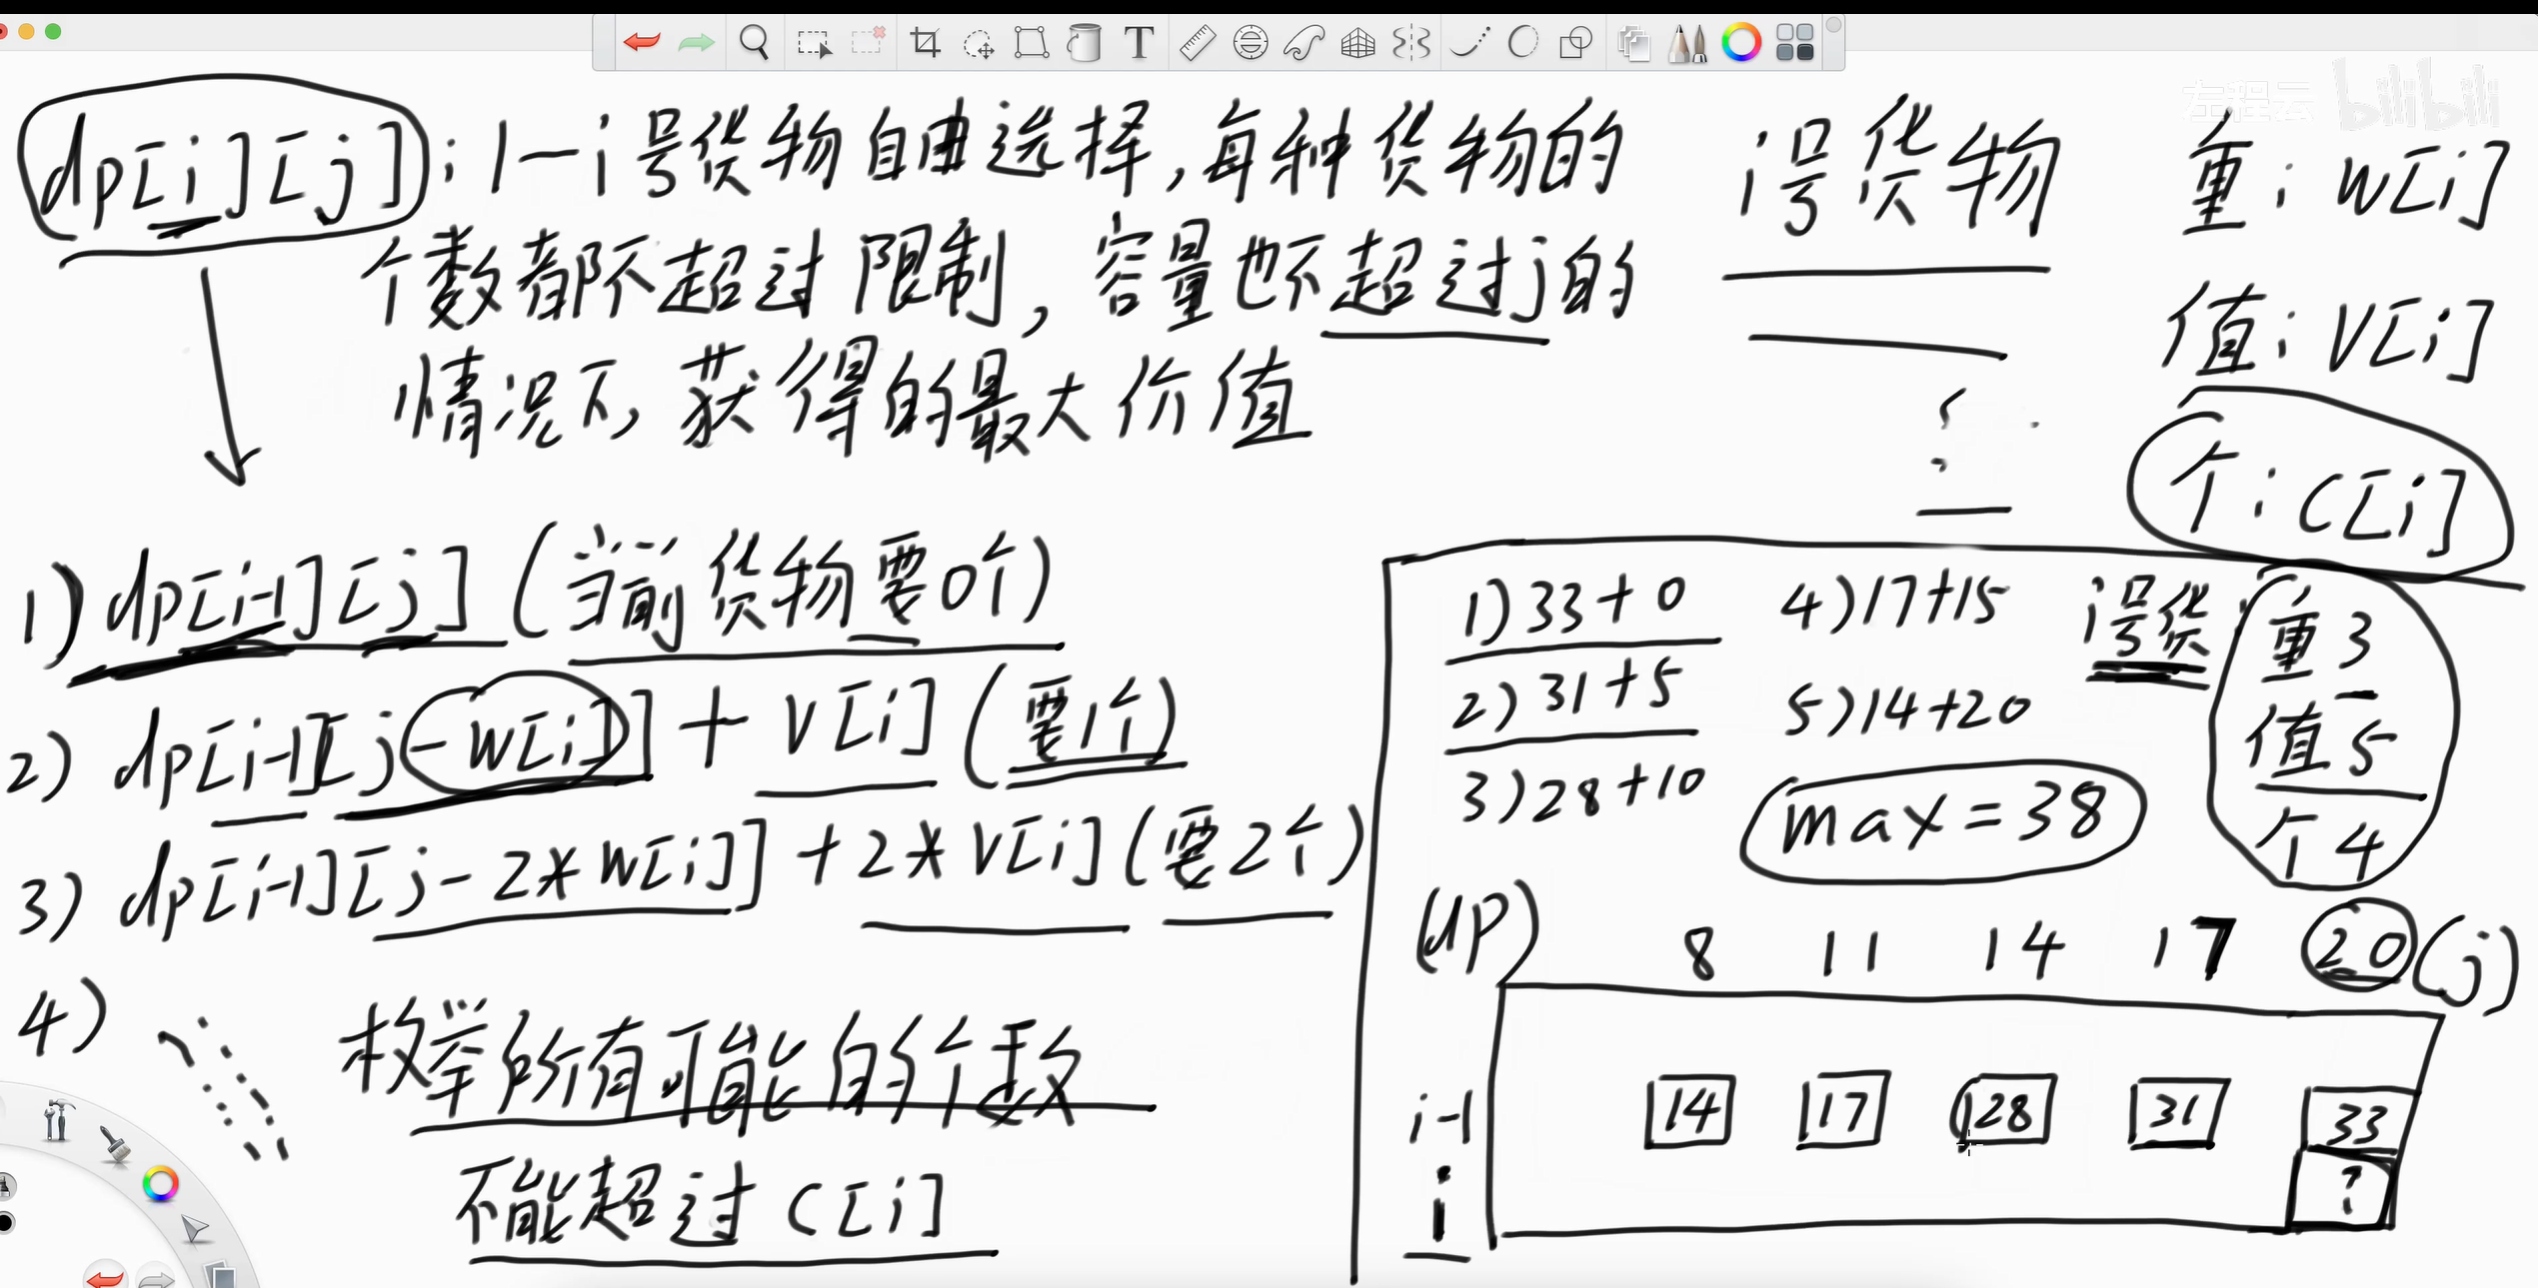 左程云 bilibili
dp[i][j]: 1-i号货物自由选择,每种货物的
个数都不超过限制,容量也不超过j的
情况下,获得的最大价值
i号货物
重: w[i]
值: v[i]
个: c[i]
1) dp[i-1][j] (当前货物要0个)
2) dp[i-1][j-w[i]] + v[i] (要1个)
3) dp[i-1][j-2*w[i]] + 2*v[i] (要2个)
4)
枚举所有可能的个数
不能超过c[i]
1) 33+0 4) 17+15
2) 31+5 5) 14+20
3) 28+10 max=38
i号货: 重3
值5
个4
(dp) 8 11 14 17 20 (j)
i-1 14 17 28 31 33
i ?